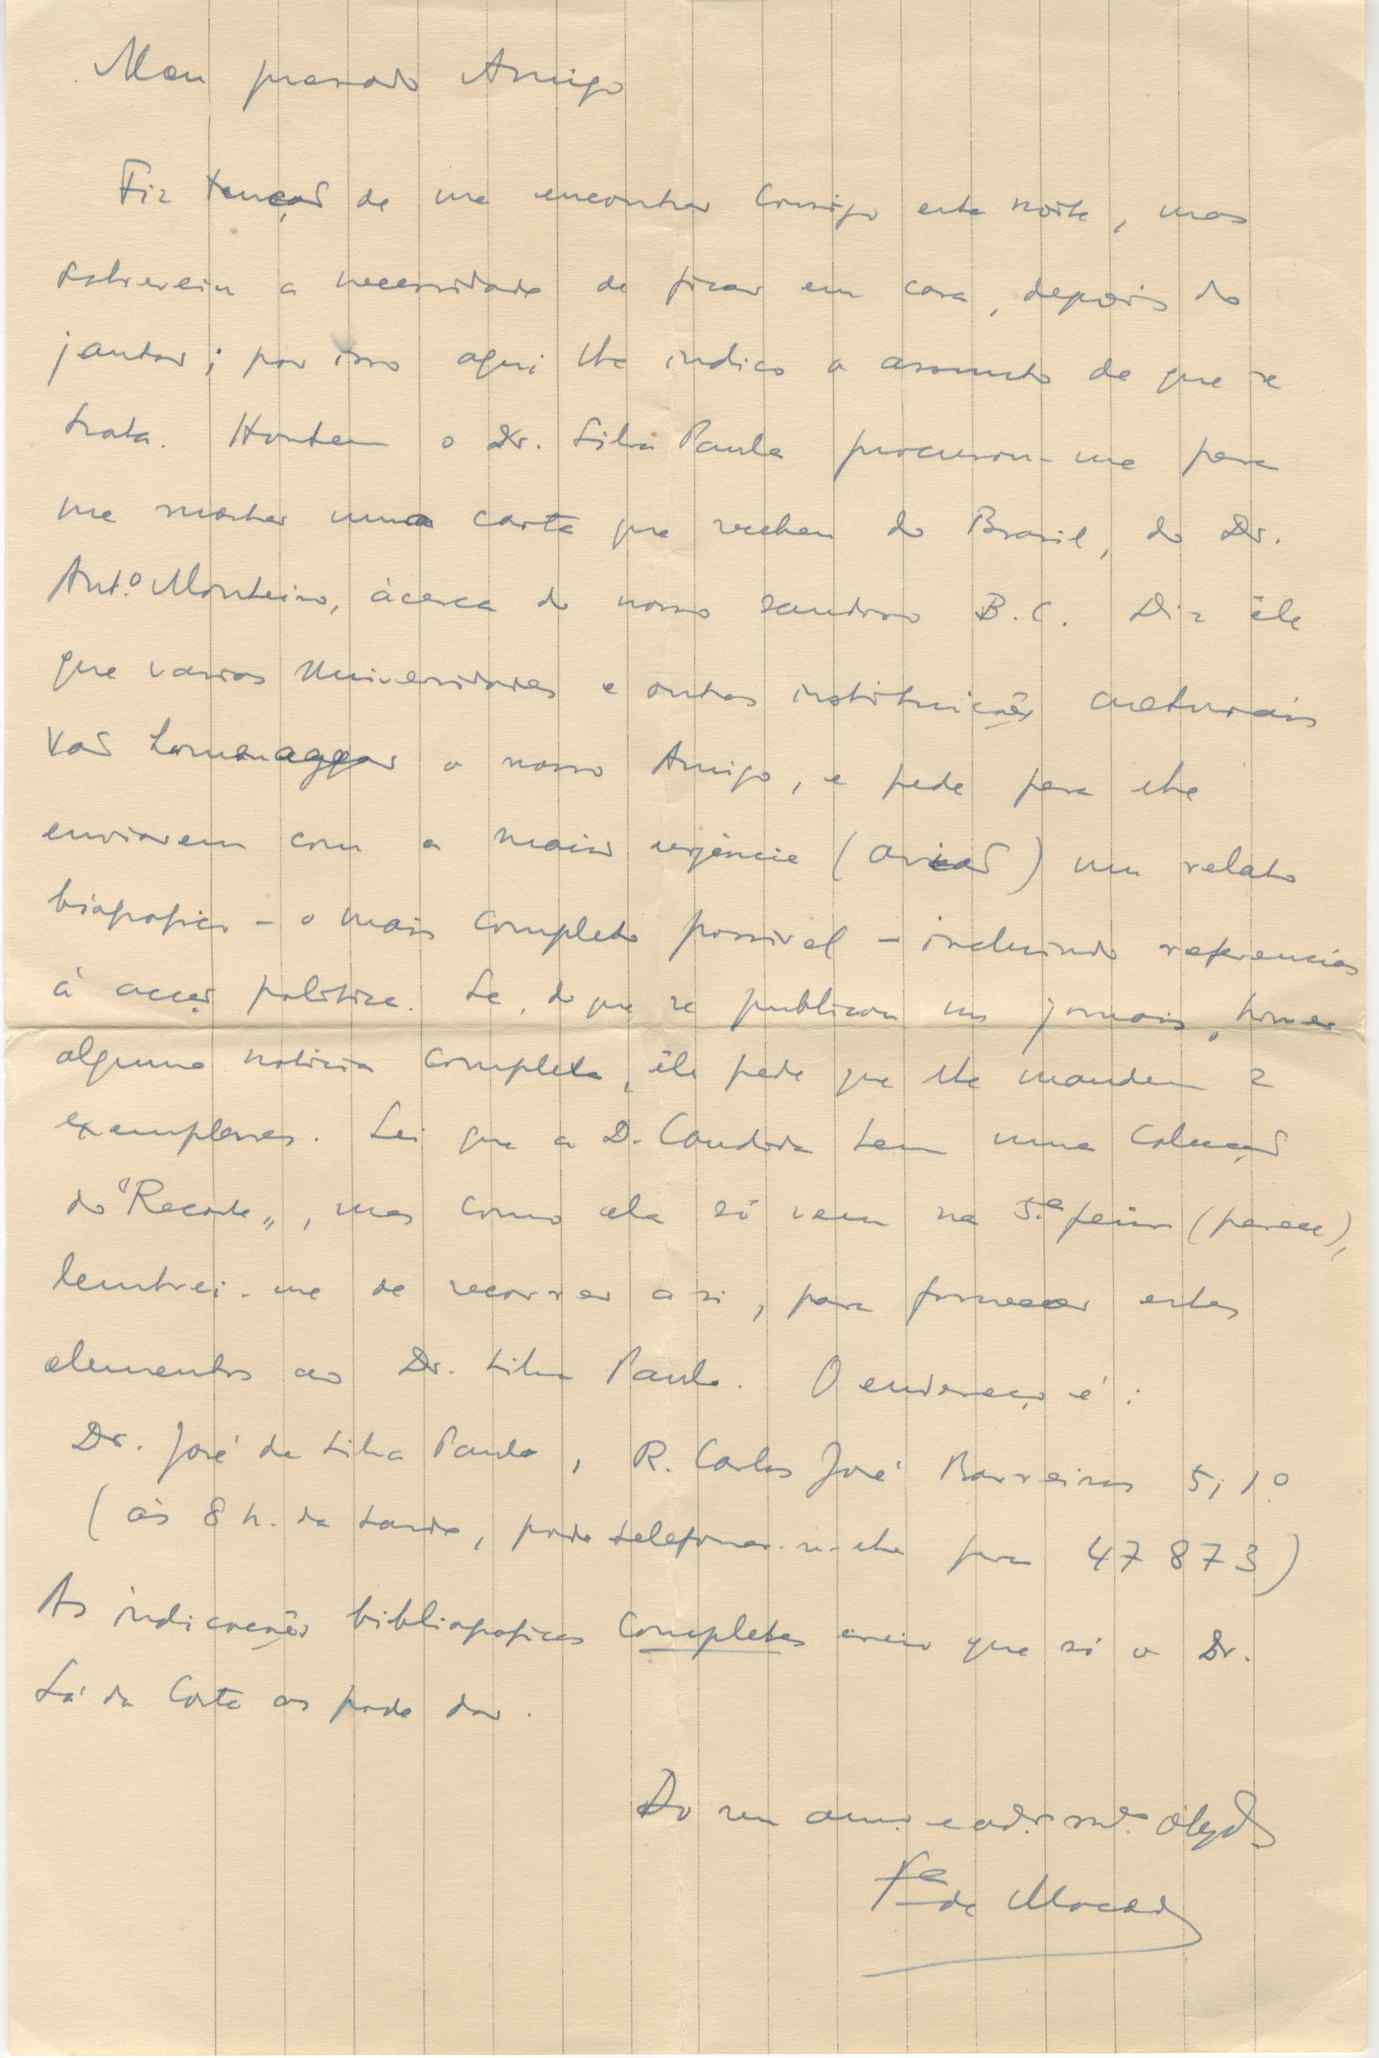 Meu presado Amigo
Fiz tenção de me encontrar consigo esta noite, mas
sobreveiu a necessidade de ficar em casa, depois do
jantar; por isso aqui lhe indico o assunto de que se
trata. Hontem o Dr. Silva Paulo procurou-me para
me mostrar uma carta que recebeu do Brasil, do Dr.
Antº Monteiro, àcerca do nosso saudoso B.C. Diz êle
que varias Universidades e outras instituições culturais
vão homenagear o nosso Amigo, e pede para lhe
enviarem com a maior urgência (avião) um relato
biografico - o mais completo possivel - incluindo referencias
á acção politica. Se, do que se publicou nos jornais, houver
alguma noticia completa, êle pede que lhe mandem 2
exemplares. Sei que a D. Candida tem uma colecção
do "Recorte", mas como ela só vem na 5.ª feira (parece),
lembrei-me de recorrer a si, para fornecer estes
elementos ao Dr. Silva Paulo. O endereço é:
Dr. José da Silva Paulo, R. Carlos José Barreiros 5, 1º
(às 8 h. da tarde, pode telefonar-se-lhe para 47 873)
As indicações bibliograficas completas creio que só o Dr.
Sá da Costa as pode dar.
Do seu amº e adº. mtº. obgdº
Fª de Macedo